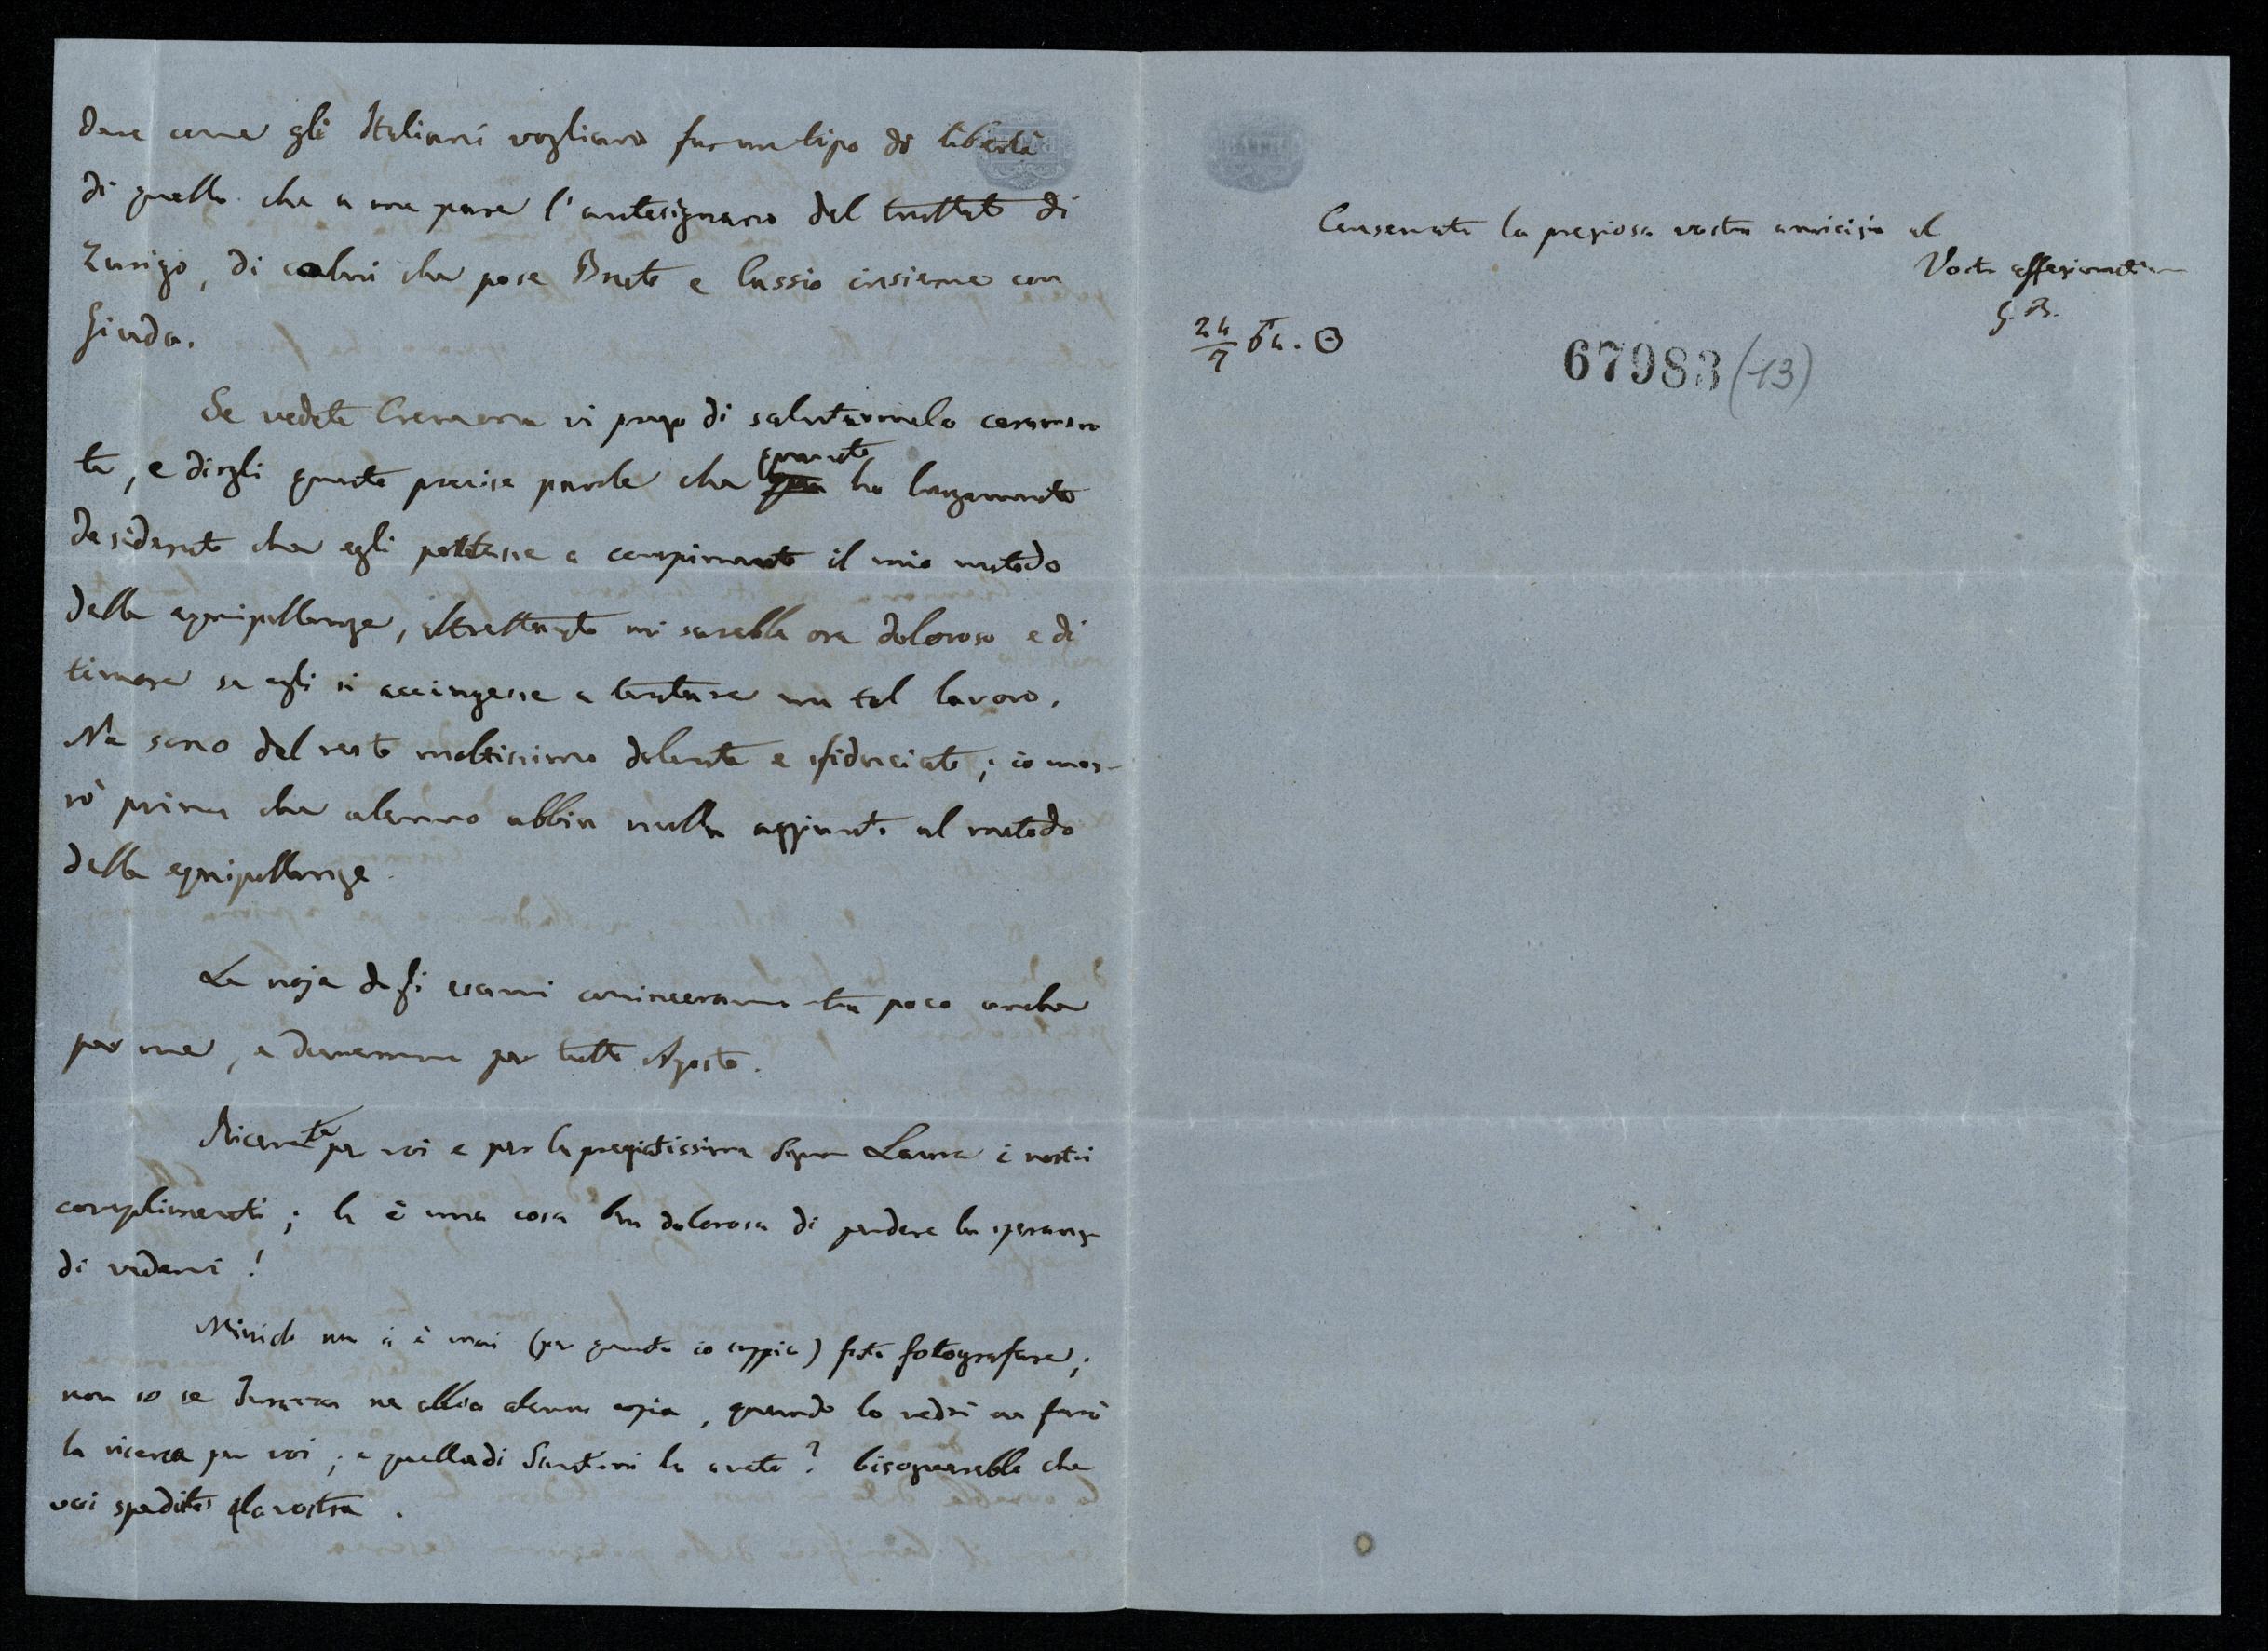 dere come gli Italiani vogliano far un tipo di libertà
di quello che a me pare l'antesignano del trattato di
Zurigo, di colui che pose Bruto e Cassio insieme con
Giuda.
Se vedete Cremona vi prego di salutarmelo caramen
te, e dirgli queste precise parole che quanto ho lungamente
desiderato che egli portasse a compimento il mio metodo
delle equipollenze, altrettanto mi sarebbe ora doloroso e di
timore se egli si accingesse a tentare un tal lavoro.
Ne sono del resto moltissimo dolente e sfiduciato; io mor-
rò prima che alcuno abbia nulla aggiunto al metodo
delle equipollenze.
La noja degli esami cominceranno tra poco anche
per me, e dureranno per tutto Agosto.
Ricevete per voi e per la pregiatissima Signora Laura i nostri
complimenti; la è una cosa ben dolorosa di perdere la speranza
di vedervi!
Minich non si è mai (per quanto io sappia) fatto fotografare;
non so se Turazza ne abbia alcuna copia, quando lo vedrò ne farò
la ricerca per voi; e quella di Santini la avete? bisognerebbe che
voi spediste la vostra.
Conservate la preziosa vostra amicizia al
Vostro affezionatissimo
G. B.
24/7 64. ⊙
67983 (13)